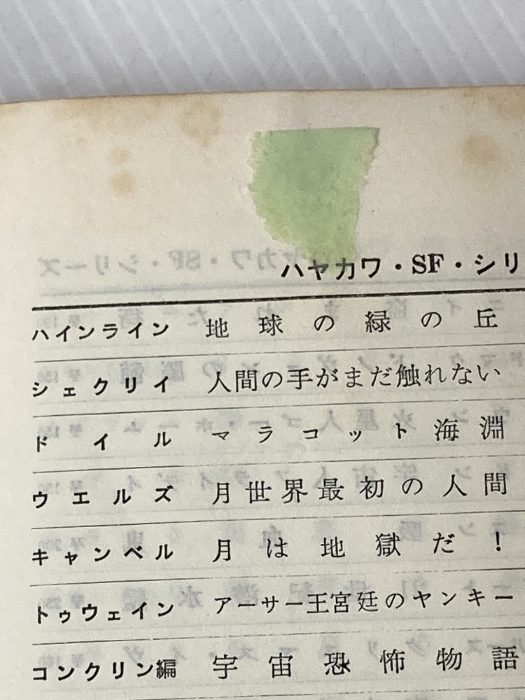 ハヤカワ・SF・シリ
ハインライン 地球の緑の丘
シェクリイ 人間の手がまだ触れない
ドイル マラコット海淵
ウエルズ 月世界最初の人間
キャンベル 月は地獄だ！
トゥウェイン アーサー王宮廷のヤンキー
コンクリン編 宇宙恐怖物語